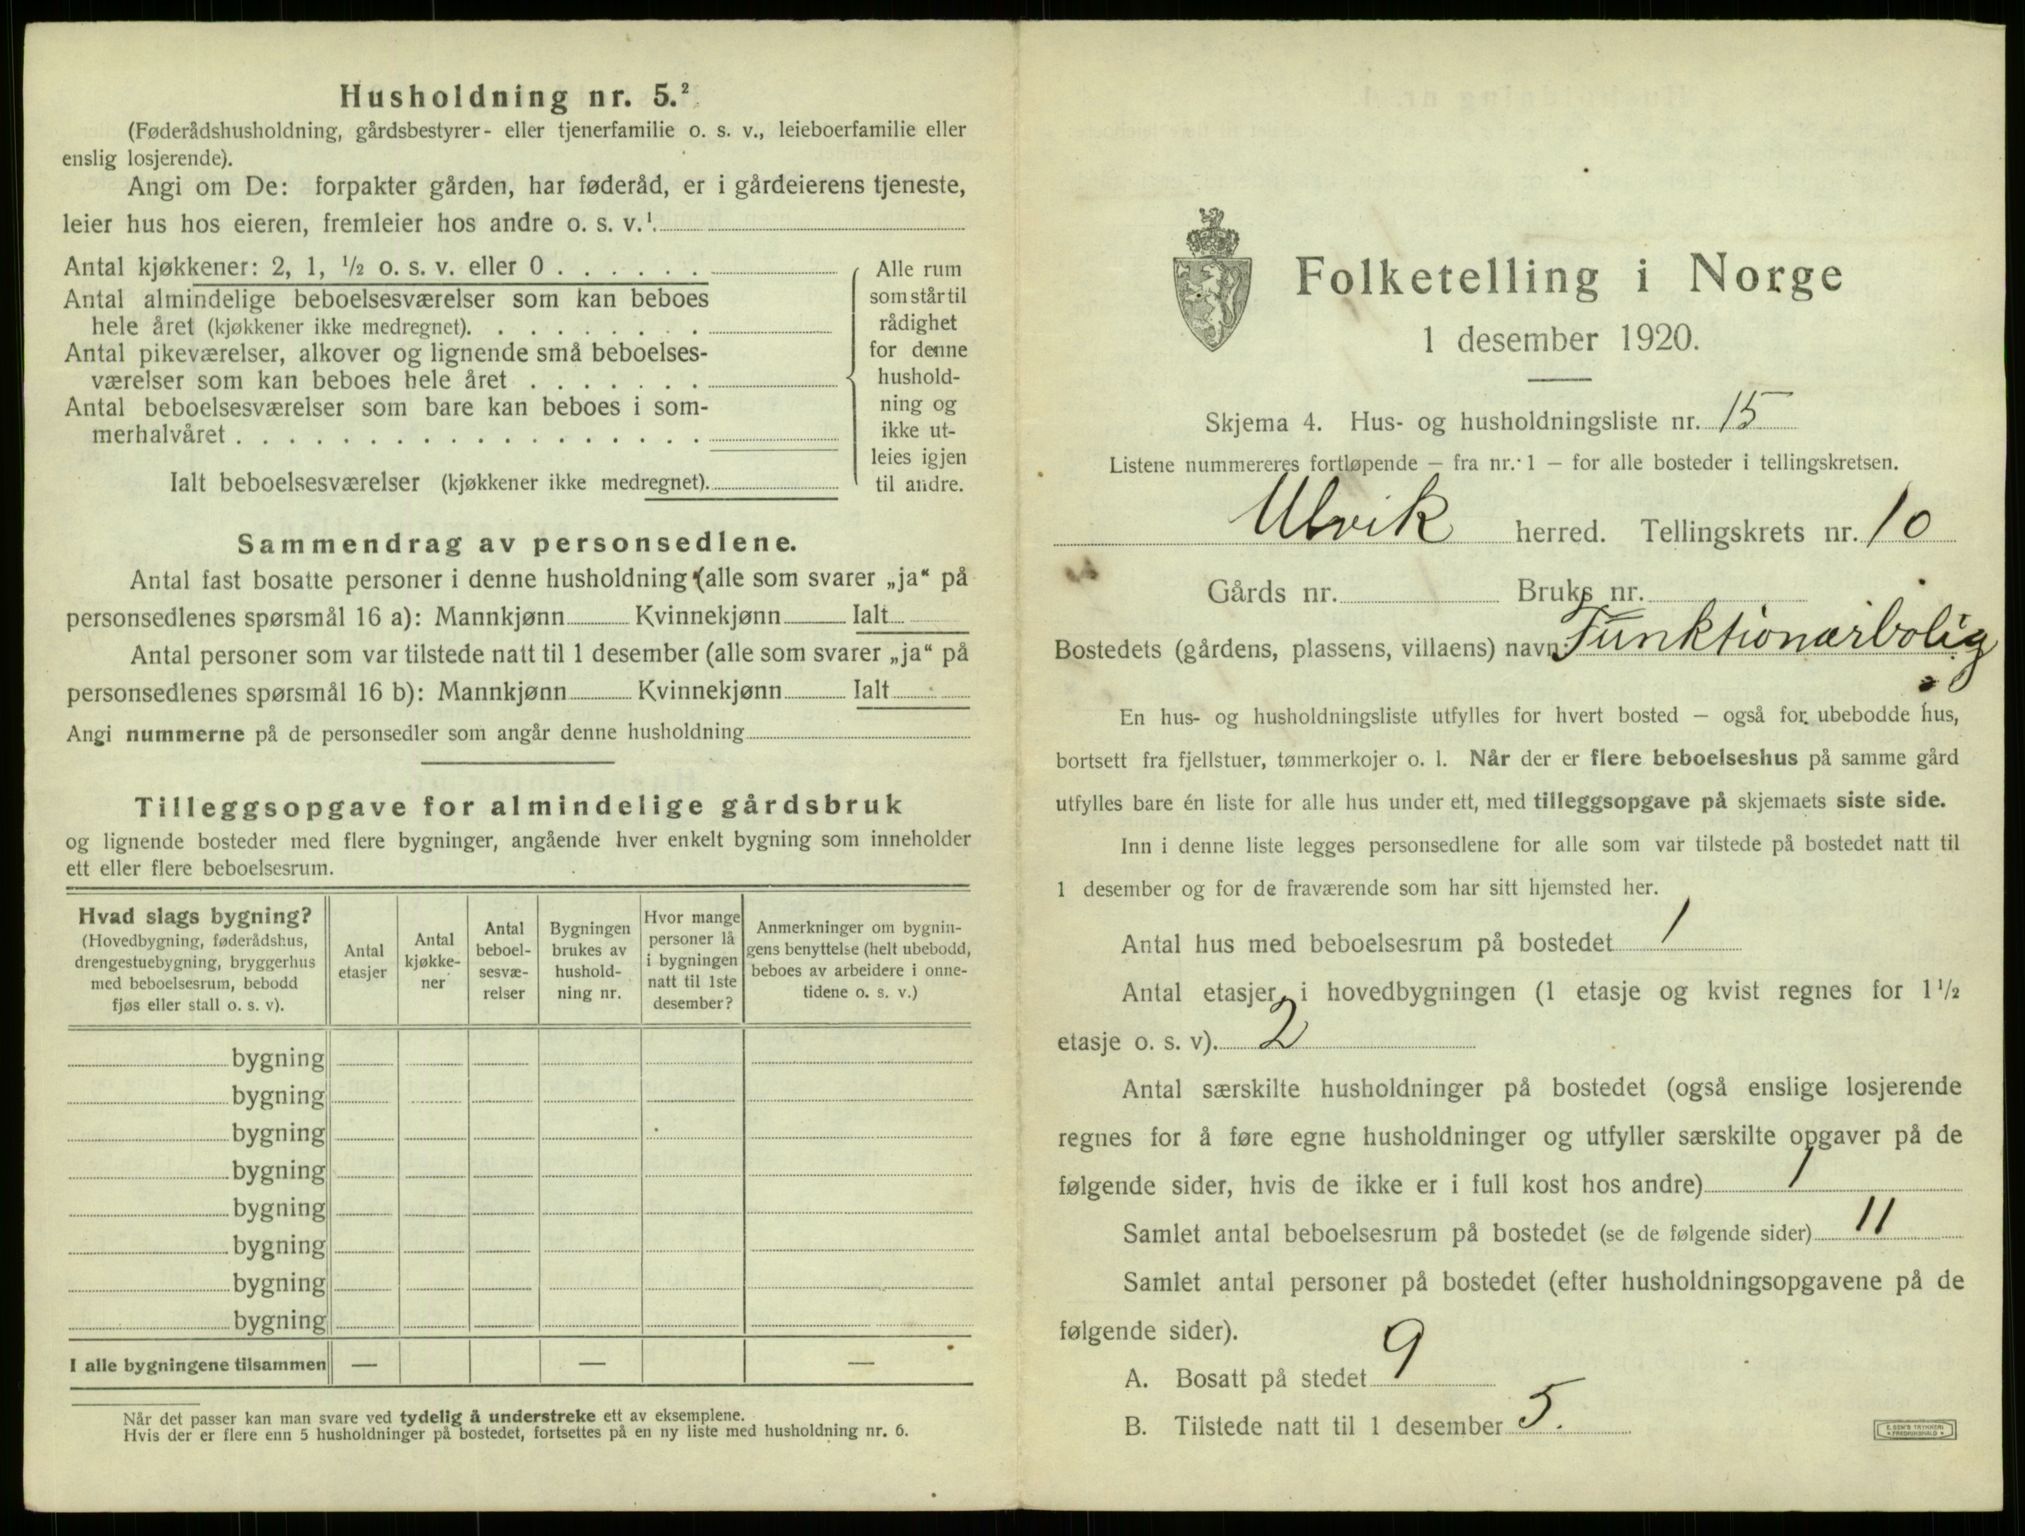 Husholdning nr. 5.²
(Føderådshusholdning, gårdsbestyrer- eller tjenerfamilie o. s. v., leieboerfamilie eller
enslig losjerende).
Angi om De: forpakter gården, har føderåd, er i gårdeierens tjeneste,
leier hus hos eieren, fremleier hos andre o. s. v.¹
Antal kjøkkener: 2, 1, ½ o. s. v. eller 0 . . . . . .
Antal almindelige beboelsesværelser som kan beboes
hele året (kjøkkener ikke medregnet). . . . . . . . .
Antal pikeværelser, alkover og lignende små beboelses-
værelser som kan beboes hele året . . . . . . .
Antal beboelsesværelser som bare kan beboes i som-
merhalvåret . . . . . . . . . . . . . . . . . .
Ialt beboelsesværelser (kjøkkener ikke medregnet).
Alle rum
som står til
rådighet
for denne
hushold-
ning og
ikke ut-
leies igjen
til andre.
Sammendrag av personsedlene.
Antal fast bosatte personer i denne husholdning (alle som svarer „ja“ på
personsedlenes spørsmål 16 a): Mannkjønn Kvinnekjønn Ialt
Antal personer som var tilstede natt til 1 desember (alle som svarer „ja“ på
personsedlenes spørsmål 16 b): Mannkjønn Kvinnekjønn Ialt
Angi nummerne på de personsedler som angår denne husholdning
Tilleggsopgave for almindelige gårdsbruk
og lignende bosteder med flere bygninger, angående hver enkelt bygning som inneholder
ett eller flere beboelsesrum.
Hvad slags bygning?
(Hovedbygning, føderådshus,
drengestuebygning, bryggerhus
med beboelsesrum, bebodd
fjøs eller stall o. s. v).
Antal
etasjer
Antal
kjøkke-
ner
Antal
beboel-
sesvæ-
relser
Bygningen
brukes av
hushold-
ning nr.
Hvor mange
personer lå
i bygningen
natt til 1ste
desember?
Anmerkninger om bygnin-
gens benyttelse (helt ubebodd,
beboes av arbeidere i onne-
tidene o. s. v.)
bygning
bygning
bygning
bygning
bygning
bygning
bygning
bygning
I alle bygningene tilsammen — — —
Når det passer kan man svare ved tydelig å understreke ett av eksemplene.
Hvis der er flere enn 5 husholdninger på bostedet, fortsettes på en ny liste med husholdning nr. 6.
Folketelling i Norge
1 desember 1920.
Skjema 4. Hus- og husholdningsliste nr. 15
Listene nummereres fortløpende – fra nr. 1 – for alle bosteder i tellingskretsen.
Ulvik herred. Tellingskrets nr. 10
Gårds nr. Bruks nr.
Bostedets (gårdens, plassens, villaens) navn: Funktionærbolig
En hus- og husholdningsliste utfylles for hvert bosted – også for ubebodde hus,
bortsett fra fjellstuer, tømmerkojer o. l. Når der er flere beboelseshus på samme gård
utfylles bare én liste for alle hus under ett, med tilleggsopgave på skjemaets siste side.
Inn i denne liste legges personsedlene for alle som var tilstede på bostedet natt til
1 desember og for de fraværende som har sitt hjemsted her.
Antal hus med beboelsesrum på bostedet 1
Antal etasjer i hovedbygningen (1 etasje og kvist regnes for 1½
etasje o. s. v). 2
Antal særskilte husholdninger på bostedet (også enslige losjerende
regnes for å føre egne husholdninger og utfyller særskilte opgaver på de
følgende sider, hvis de ikke er i full kost hos andre) 1
Samlet antal beboelsesrum på bostedet (se de følgende sider) 11
Samlet antal personer på bostedet (efter husholdningsopgavene på de
følgende sider).
A. Bosatt på stedet 9
B. Tilstede natt til 1 desember 5.